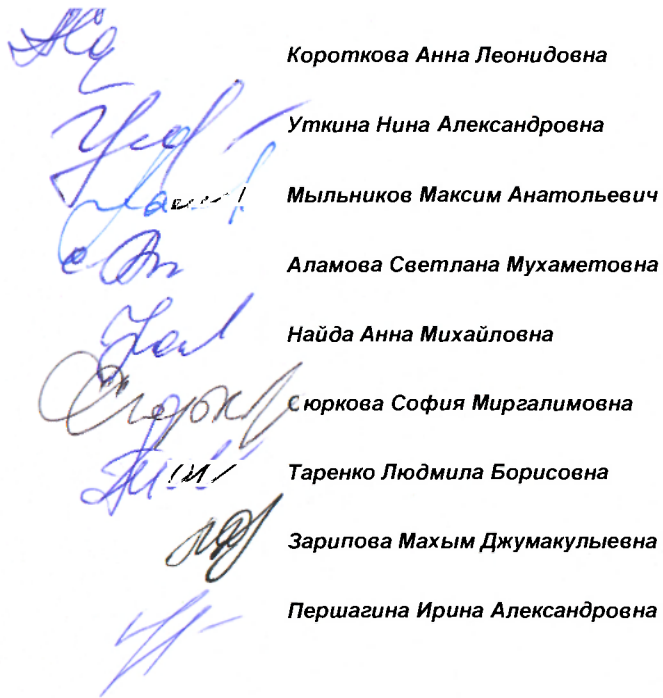 Короткова Анна Леонидовна
Уткина Нина Александровна
Мыльников Максим Анатольевич
Аламова Светлана Мухаметовна
Найда Анна Михайловна
Сюркова София Миргалимовна
Таренко Людмила Борисовна
Зарипова Махым Джумакулыевна
Першагина Ирина Александровна